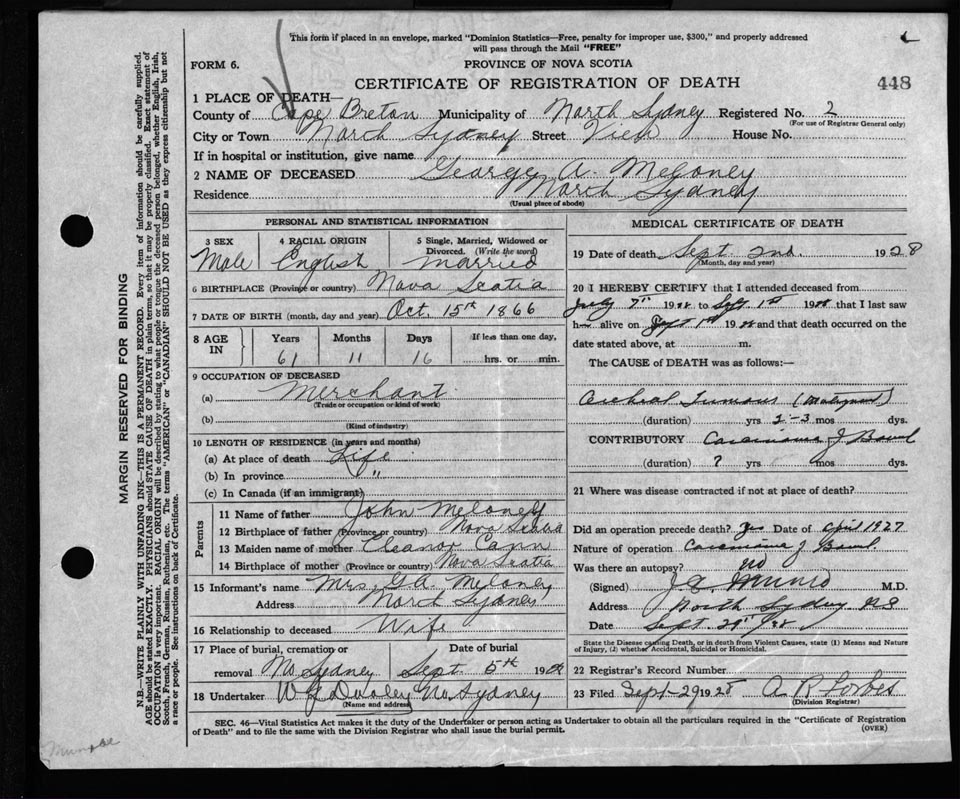 This form if placed in an envelope, marked "Dominion Statistics—Free, penalty for improper use, $300," and properly addressed
will pass through the Mail "FREE"
FORM 6.
PROVINCE OF NOVA SCOTIA
CERTIFICATE OF REGISTRATION OF DEATH
448
1 PLACE OF DEATH—
County of Cape Breton Municipality of North Sydney Registered No. 2
(For use of Registrar General only)
City or Town North Sydney Street House No.
If in hospital or institution, give name
2 NAME OF DECEASED George A. Meloney
Residence North Sydney
(Usual place of abode)
PERSONAL AND STATISTICAL INFORMATION
3 SEX 4 RACIAL ORIGIN 5 Single, Married, Widowed or Divorced. (Write the word)
Male English Married
6 BIRTHPLACE (Province or country) Nova Scotia
7 DATE OF BIRTH (month, day and year) Oct. 15th 1866
8 AGE IN Years Months Days If less than one day,
61 11 16 hrs. or min.
9 OCCUPATION OF DECEASED
(a) Merchant
(Trade or occupation or kind of work)
(b)
(Kind of industry)
10 LENGTH OF RESIDENCE (in years and months)
(a) At place of death Life
(b) In province "
(c) In Canada (if an immigrant)
Parents
11 Name of father John Meloney
12 Birthplace of father (Province or country) Nova Scotia
13 Maiden name of mother Eleanor Cann
14 Birthplace of mother (Province or country) Nova Scotia
15 Informant's name Mrs. G.A. Meloney
Address North Sydney
16 Relationship to deceased Wife
17 Place of burial, cremation or Date of burial
removal No Sydney Sept 5th 1928
18 Undertaker No. Sydney
(Name and address)
MEDICAL CERTIFICATE OF DEATH
19 Date of death Sept. 2nd. 1928
(Month, day and year)
20 I HEREBY CERTIFY that I attended deceased from
July 7th 1928 to Sept 1st 1928 that I last saw
h alive on Sept 1st 1928 and that death occurred on the
date stated above, at m.
The CAUSE of DEATH was as follows:—
Cerebral Tumour (Malignant)
(duration) yrs 2-3 mos dys.
CONTRIBUTORY Carcinoma of Bowel
(duration) ? yrs mos dys.
21 Where was disease contracted if not at place of death?
Did an operation precede death? Yes Date of April 1927
Nature of operation Carcinoma of Bowel.
Was there an autopsy? No
(Signed) M.D.
Address North Sydney NS
Date Sept. 29th/28
State the Disease causing Death, or in death from Violent Causes, state (1) Means and Nature
of Injury, (2) whether Accidental, Suicidal or Homicidal.
22 Registrar's Record Number
23 Filed Sept-29 1928 A. R. Forbes
(Division Registrar)
SEC. 46—Vital Statistics Act makes it the duty of the Undertaker or person acting as Undertaker to obtain all the particulars required in the "Certificate of Registration
of Death" and to file the same with the Division Registrar who shall issue the burial permit.
(OVER)
MARGIN RESERVED FOR BINDING
N.B.—WRITE PLAINLY WITH UNFADING INK—THIS IS A PERMANENT RECORD. Every item of information should be carefully supplied.
AGE should be stated EXACTLY. PHYSICIANS should STATE CAUSE OF DEATH in plain terms, so that it may be properly classified. Exact statement of
OCCUPATION is very important. RACIAL ORIGIN will be described by stating to what people or tongue the deceased person belonged, whether English, Irish,
Scotch, French, German, Russian, Ruthenian, etc. The terms "AMERICAN" or "CANADIAN" SHOULD NOT BE USED as they express citizenship but not
a race or people. See instructions on back of Certificate.